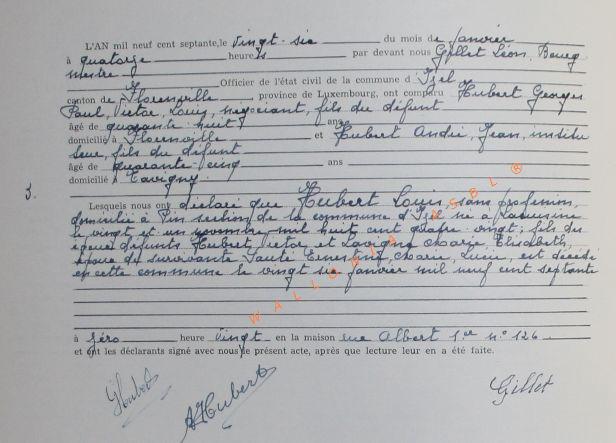 L'AN mil neuf cent septante, le vingt-six du mois de janvier
à quatorze heures par devant nous Gillet Léon, Bourg
mestre Officier de l'état civil de la commune d'Izel
canton de Florenville province de Luxembourg, ont comparu Hubert Georges
Paul, Victor, Louis, négociant, fils du défunt
âgé de quarante huit ans
domicilié à Florenville et Hubert André, Jean, institu
teur, fils du défunt
âgé de quarante-cinq ans
domicilié à Tavigny
3.
Lesquels nous ont déclaré que Hubert Louis, sans profession,
domicilié à Pin section de la commune d'Izel né à Lacuisine
le vingt et un novembre mil huit cent quatre-vingt; fils des
époux défunts Hubert, Victor et Lavigne Marie, Elisabeth,
époux de survivante Ernestine, Marie, Lucie, est décédé
en cette commune le vingt six janvier mil neuf cent septante
à zéro heure vingt en la maison rue Albert 1er n° 126
et ont les déclarants signé avec nous le présent acte, après que lecture leur en a été faite.
GHubert
AHubert
Gillet
WALLONIA ASBL ®